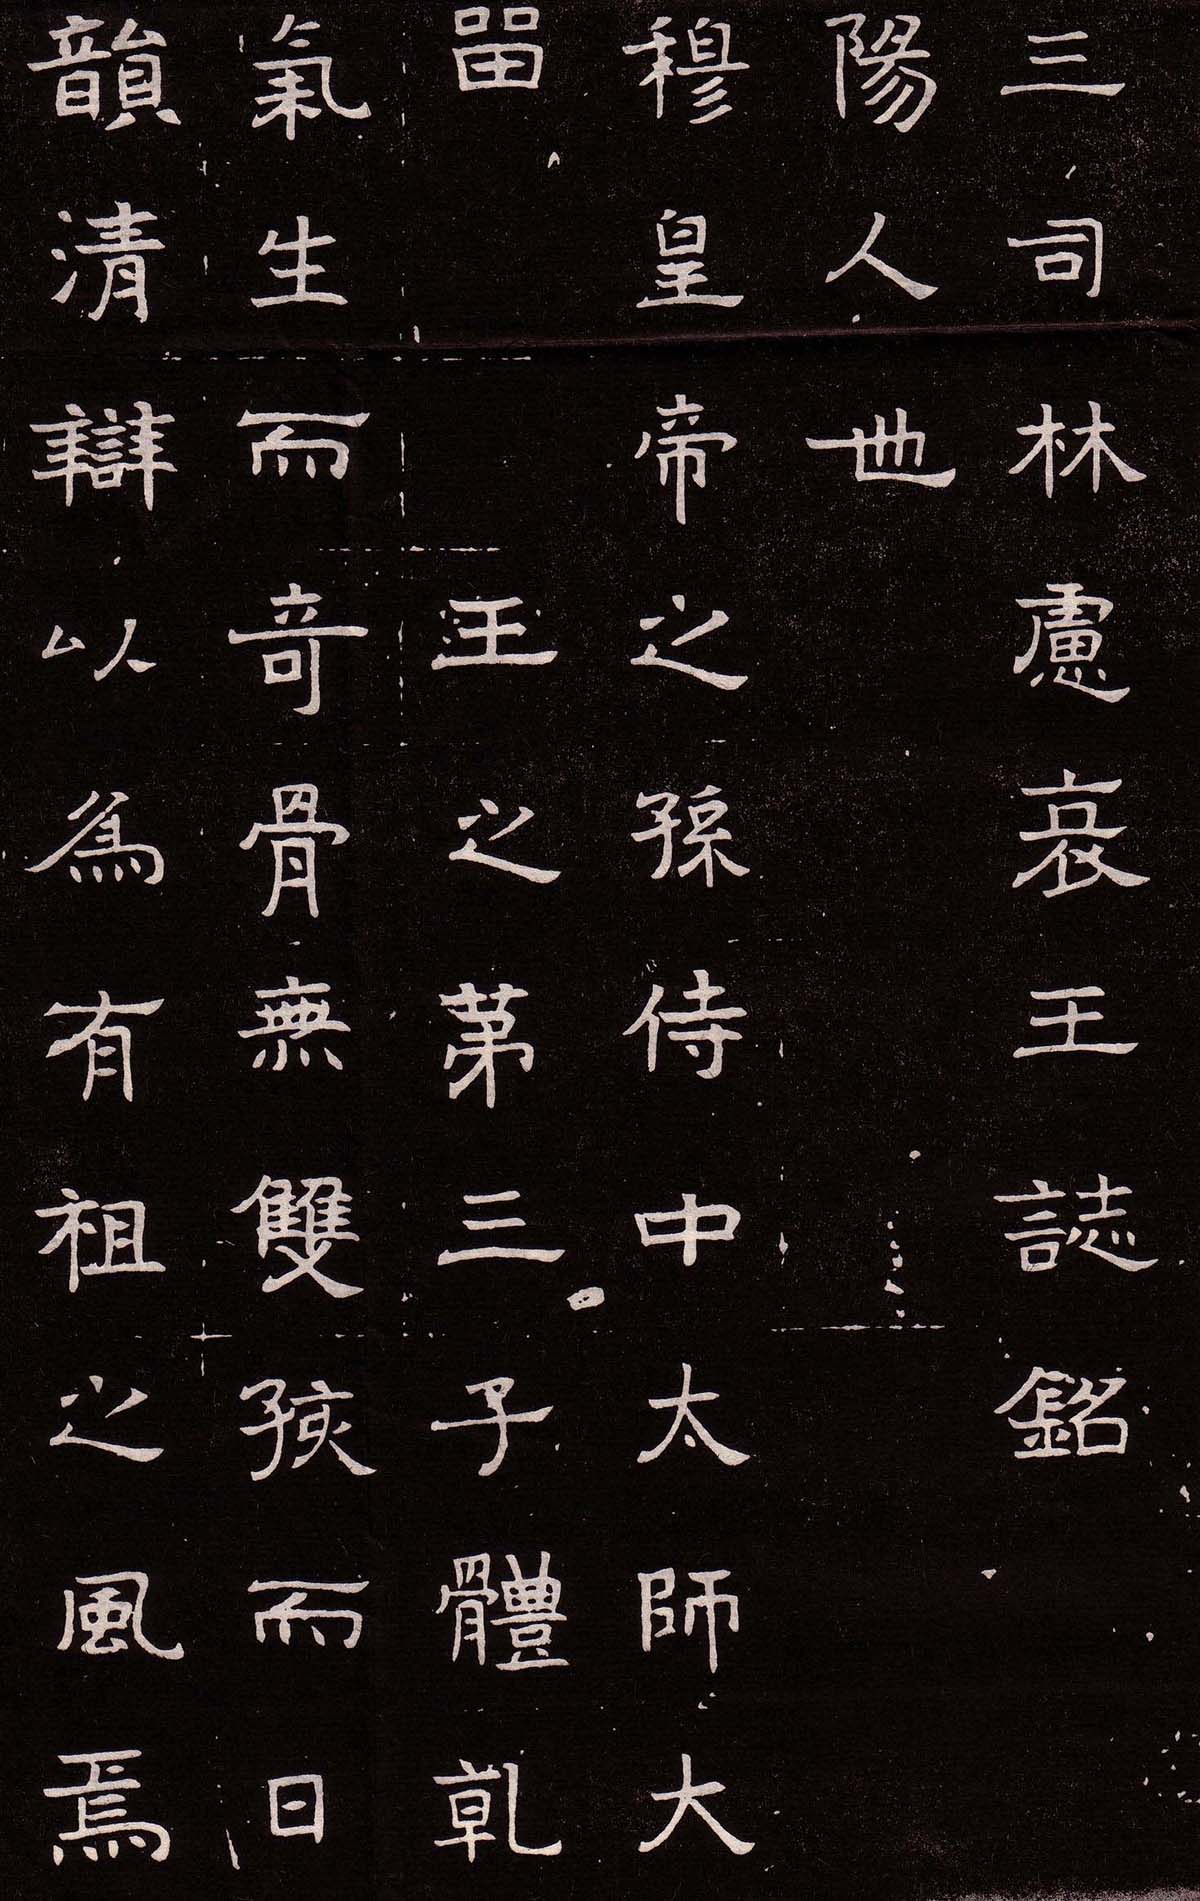 三司林慮哀王誌銘
陽人也
穆皇帝之孫侍中太師大
畱王之苐三子體乹
氣生而奇骨無雙孩而日
韻清辯以為有祖之風焉